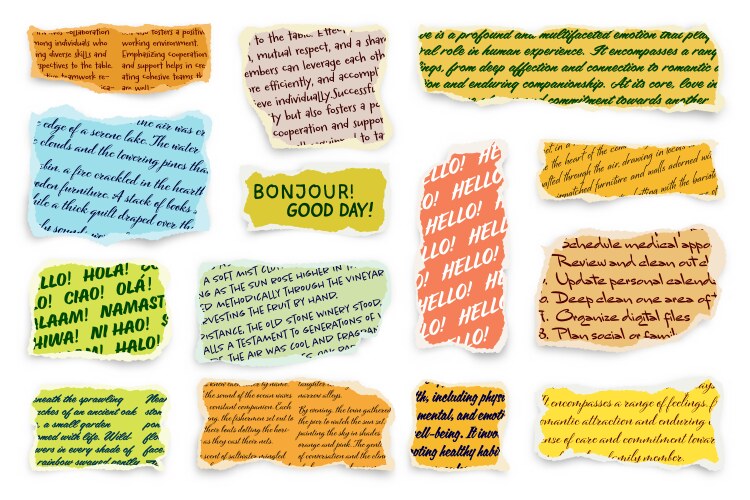 collaboration
among individuals who
ing diverse skills and
spectives to the table.
teamwork re-
also fosters a positive
working environment.
Emphasizing cooperation
and support helps in cre-
ating cohesive teams th
to the table. Effe
, mutual respect, and a shar
embers can leverage each oth
re efficiently, and accompl
ieve individually.Successfu
ty but also fosters a po
cooperation and suppor
to ta
ve is a profound and multifaceted emotion that play
ral role in human experience. It encompasses a rang
ings, from deep affection and connection to romantic a
ion and enduring companionship. At its core, love in
commitment towards another
the air was cr
edge of a serene lake. The water
clouds and the towering pines tha
bin, a fire crackled in the hearth
oden furniture. A stack of books s
hile a thick quilt draped over the
ly sound
BONJOUR!
GOOD DAY!
HELLO! HE
HELLO! HELLO
HELLO! HELLO!
HELLO! HELLO!
HELLO! HELLO!
HELLO! HELLO!
HELLO!
et in a
the heart of the com
afted through the air, drawing in
smatched furniture and walls adorned wi
with the barista
LLO! HOLA!
O! CIAO! OLÁ!
LAAM! NAMAST
HIWA! NI HAO! S
AM! HALO!
A SOFT MIST
NG AS THE SUN ROSE HIGHER IN TH
ED METHODICALLY THROUGH THE VINEYAR
RVESTING THE FRUIT BY HAND.
DISTANCE, THE OLD STONE WINERY STOOD
ALLS A TESTAMENT TO GENERATIONS OF W
THE AIR WAS COOL AND FRAGRAN
Schedule medical appo
Review and clean out c
. Update personal calenda
0. Deep clean one area of
1. Organize digital files
3. Plan social or famil
neath the sprawling
ches of an ancient oak
, a small garden
med with life. Wild
ers in every shade of
rainbow swayed gently
Near
ston
por
flo
face
the sound of the ocean waves
constant companion. Each
ng, the fishermen set out to
their boats dotting the hori-
as they cast their nets.
scent of saltwater mingled
laughter
narrow alleys.
By evening, the town gathered
the pier to watch the sun set
painting the sky in shades
orange and pink. The gentle
of conversation and the
th, including phys
mental, and emoti
ll-being. It invo
oting healthy habi
encompasses a range of feelings, f
omantic attraction and enduring
nse of care and commitment towar
family member.